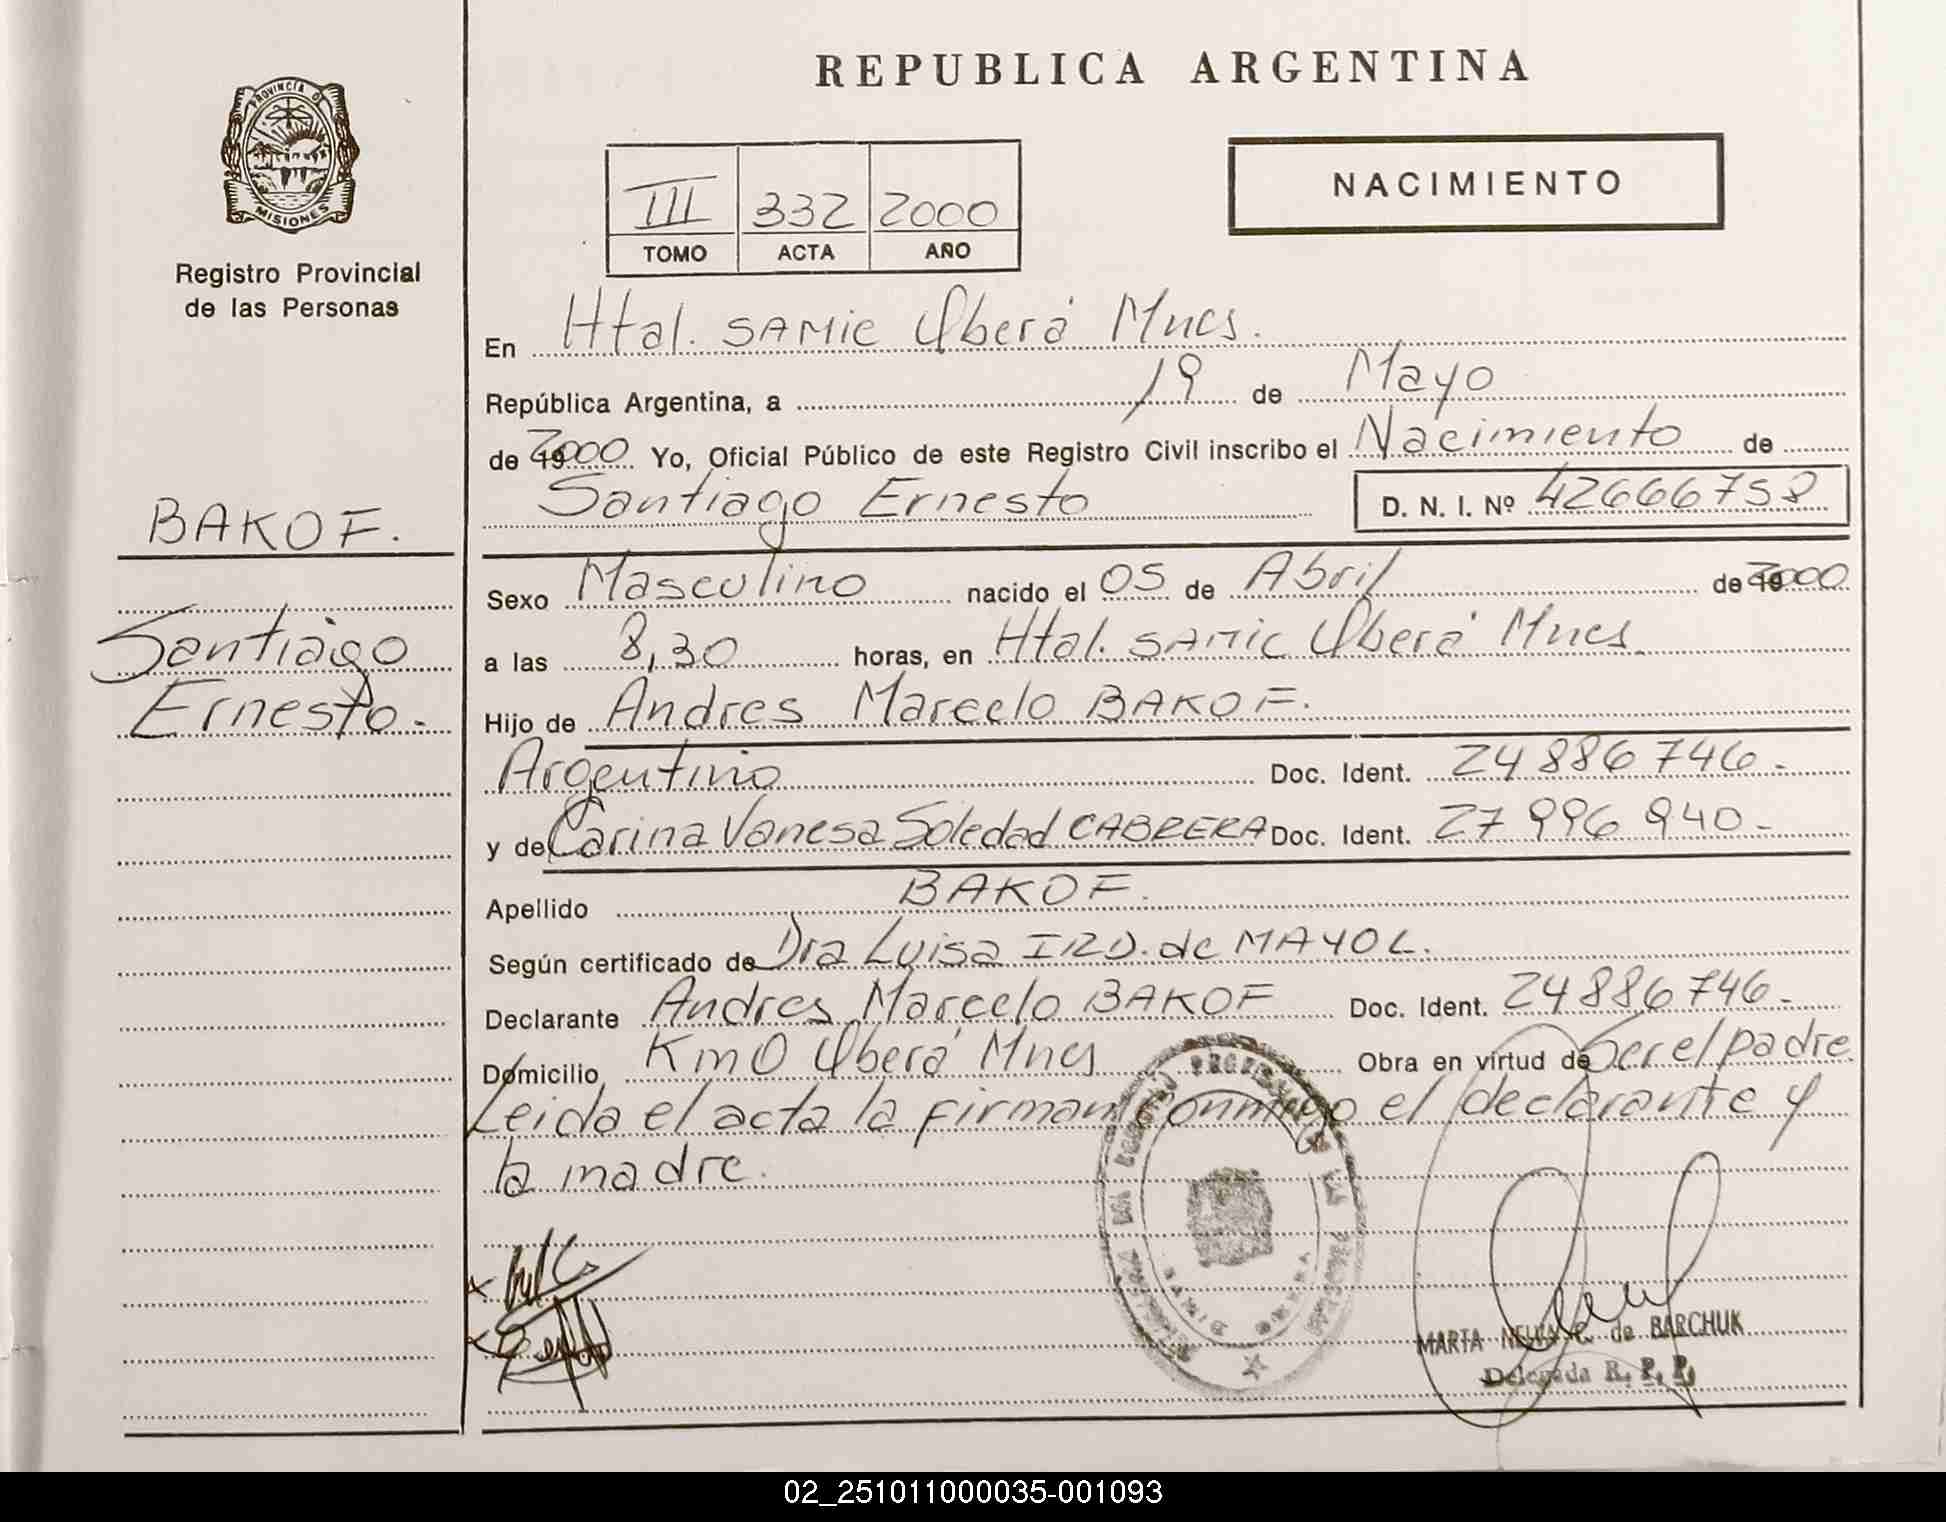 REPUBLICA ARGENTINA
PROVINCIA DE
MISIONES
Registro Provincial
de las Personas
III 332 2000
TOMO ACTA AÑO
NACIMIENTO
En Htal. SAMIC Oberá Mnes.
República Argentina, a 19 de Mayo
de 2000 Yo, Oficial Público de este Registro Civil inscribo el Nacimiento de
Santiago Ernesto D. N. I. Nº 42666758
BAKOF.
Santiago
Ernesto.-
Sexo Masculino nacido el 05 de Abril de 2000
a las 8,30 horas, en Htal. SAMIC Oberá Mnes.
Hijo de Andres Marcelo BAKOF.
Argentino Doc. Ident. 24886746.-
y de Carina Vanesa Soledad CABRERA Doc. Ident. 27996940.-
Apellido BAKOF.
Según certificado de Dra Luisa IRD. de MAYOL.
Declarante Andres Marcelo BAKOF Doc. Ident. 24886746.-
Domicilio Km0 Oberá Mnes Obra en virtud de Ser el padre.
Leida el acta la firman conmigo el declarante y
la madre.
MARTA de BARCHUK
Delegada R. P. P.
02_251011000035-001093